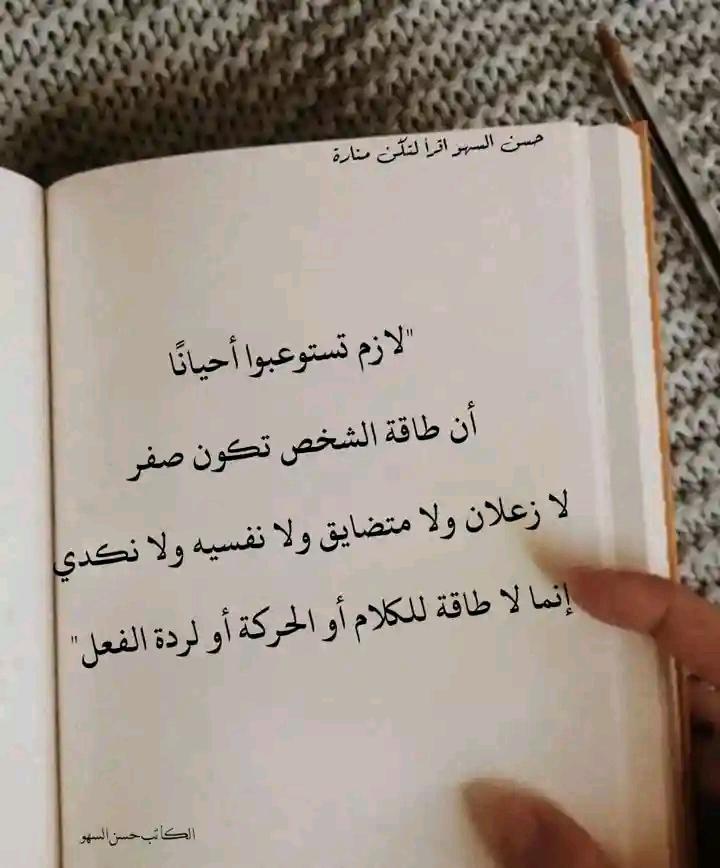 حسن السهو اقرأ لتكن منارة
"لازم تستوعبوا أحيانًا
أن طاقة الشخص تكون صفر
لا زعلان ولا متضايق ولا نفسيه ولا نكدي
إنما لا طاقة للكلام أو الحركة أو لردة الفعل"
الكاتب حسن السهو